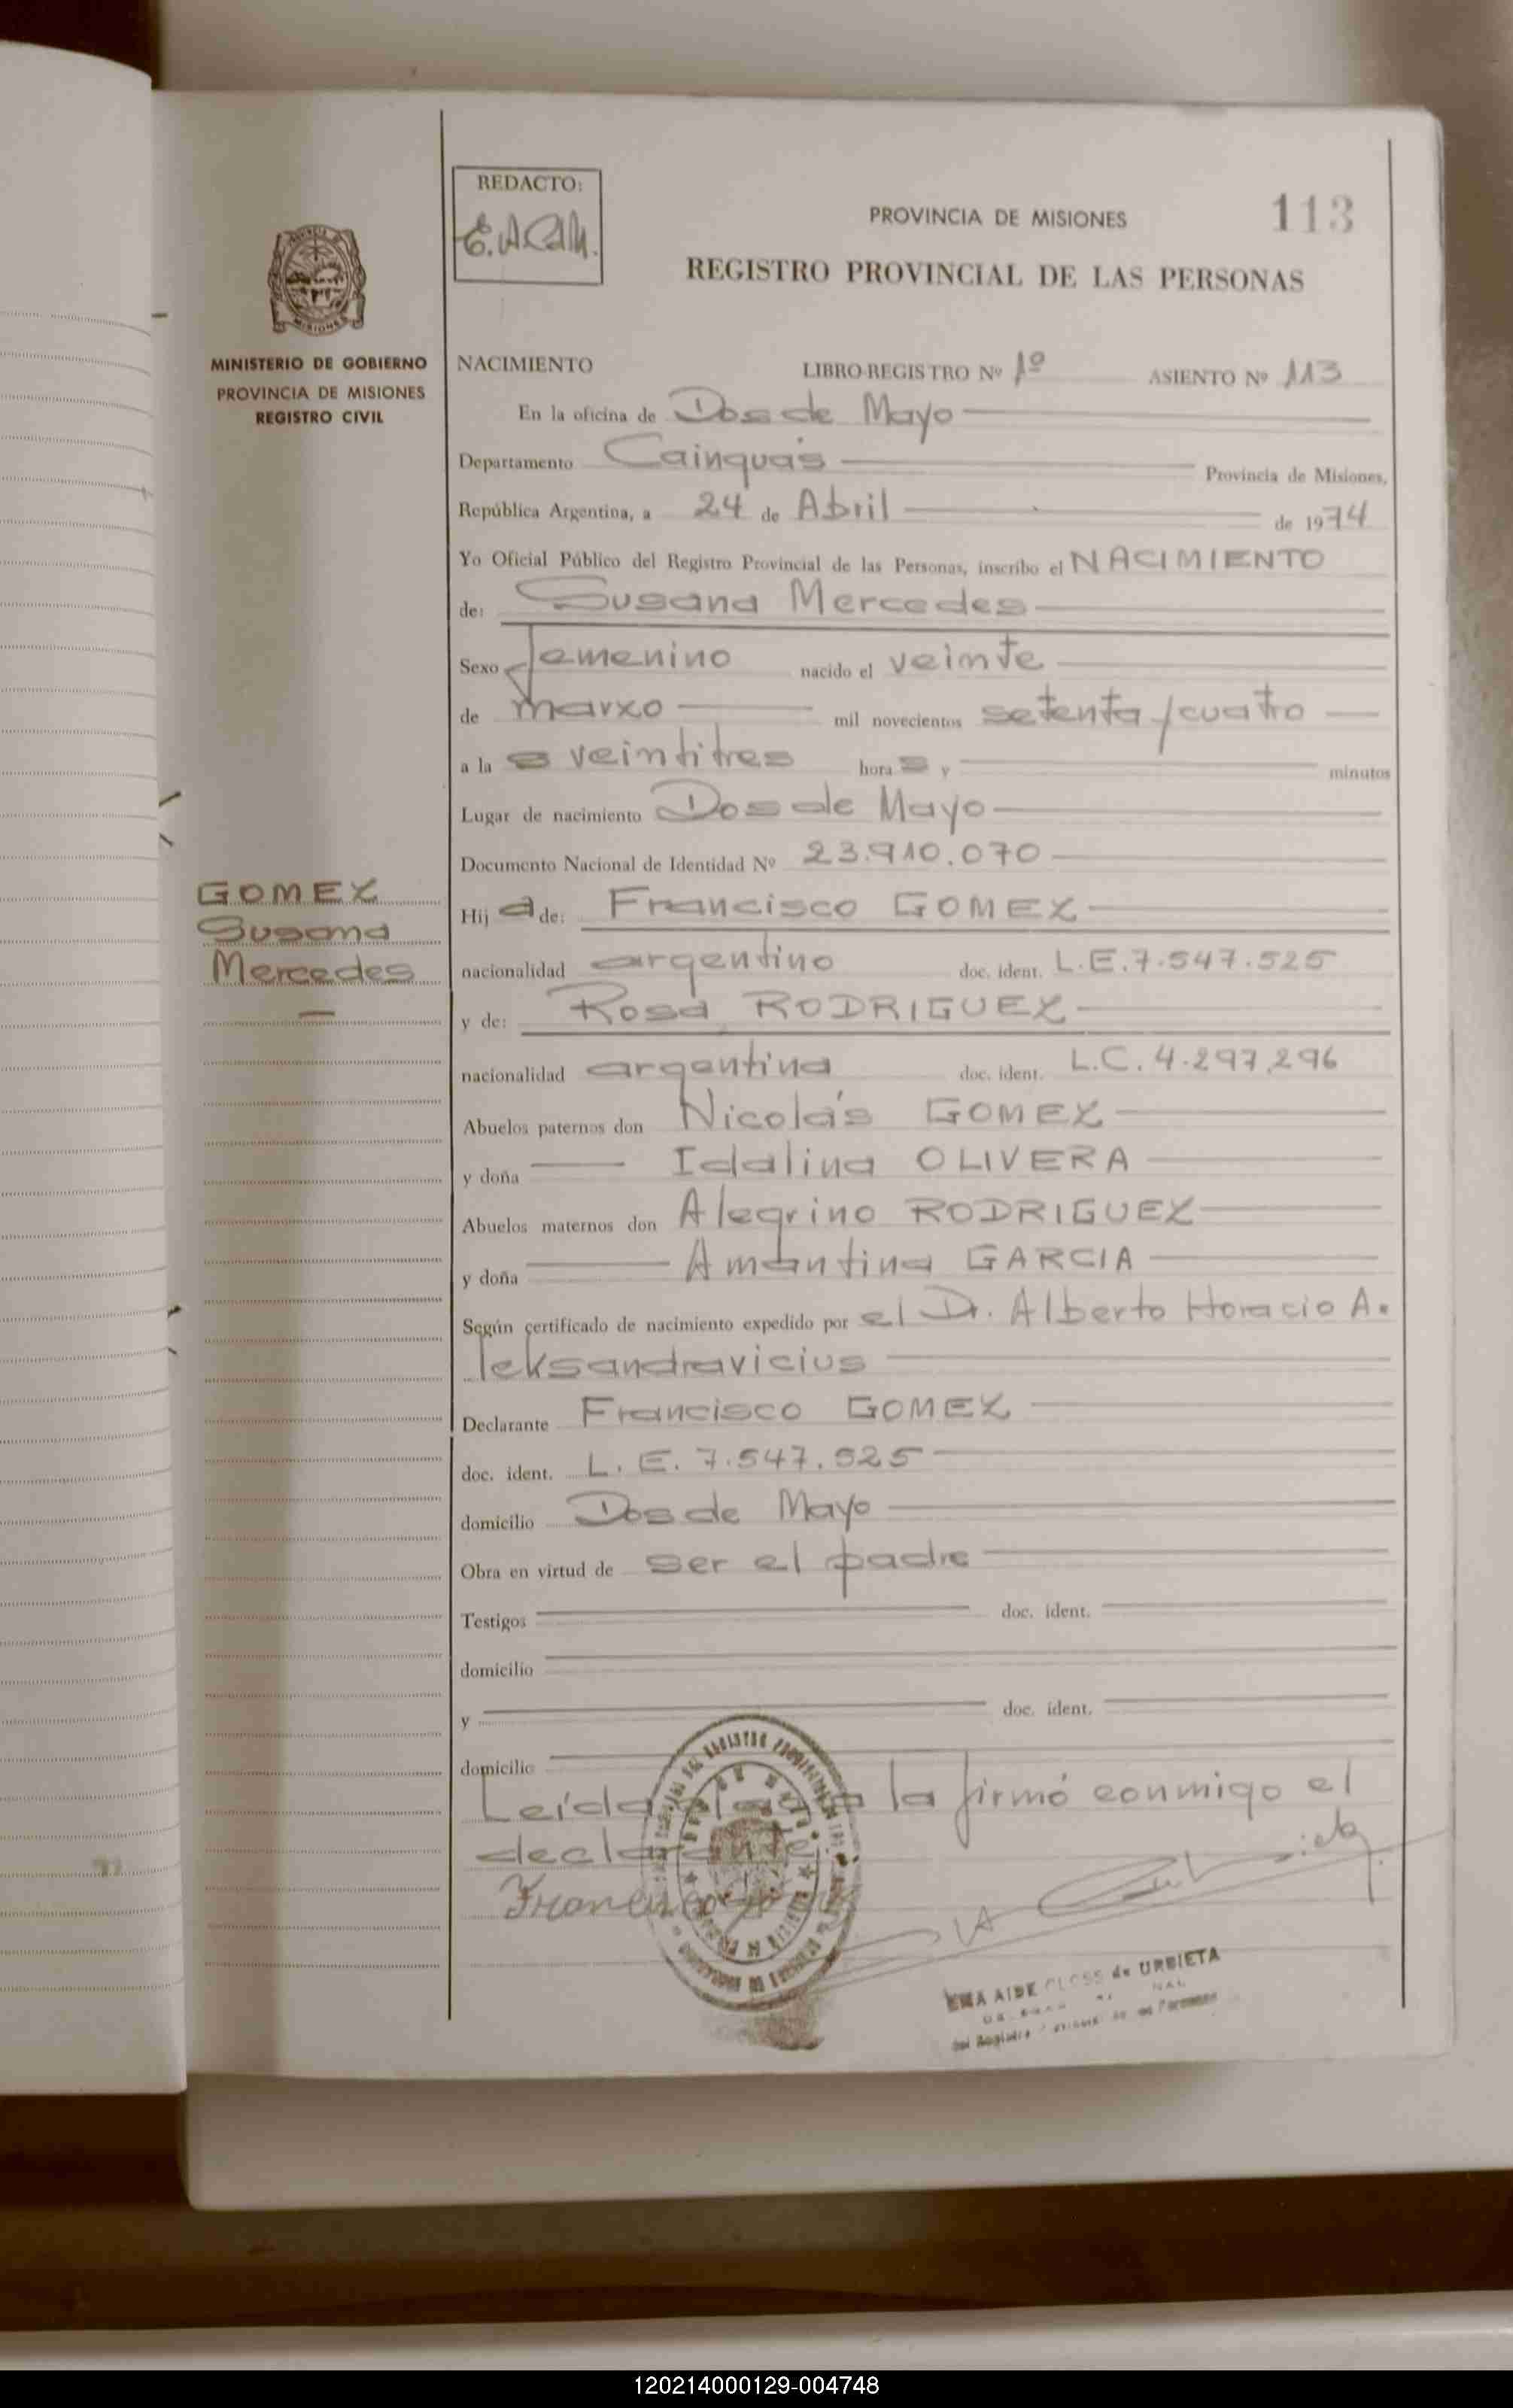 REDACTO:
E.ACdU.
PROVINCIA DE MISIONES
113
REGISTRO PROVINCIAL DE LAS PERSONAS
MISIONES
MINISTERIO DE GOBIERNO
PROVINCIA DE MISIONES
REGISTRO CIVIL
GOMEZ
Susana
Mercedes
NACIMIENTO LIBRO-REGISTRO Nº 1º ASIENTO Nº 113
En la oficina de Dos de Mayo
Departamento Cainguás Provincia de Misiones,
República Argentina, a 24 de Abril de 1974
Yo Oficial Público del Registro Provincial de las Personas, inscribo el NACIMIENTO
de: Susana Mercedes
Sexo femenino nacido el veinte
de marzo mil novecientos setenta/cuatro
a la s veintitres hora s y minutos
Lugar de nacimiento Dos de Mayo
Documento Nacional de Identidad Nº 23.910.070
Hij a de: Francisco GOMEZ
nacionalidad argentino doc. ident. L.E.7.547.525
y de: Rosa RODRIGUEZ
nacionalidad argentina doc. ident. L.C. 4.297.296
Abuelos paternos don Nicolás GOMEZ
y doña Idalina OLIVERA
Abuelos maternos don Alegrino RODRIGUEZ
y doña Amantina GARCIA
Según certificado de nacimiento expedido por el Dr. Alberto Horacio A=
leksandravicius
Declarante Francisco GOMEZ
doc. ident. L. E. 7.547.525
domicilio Dos de Mayo
Obra en virtud de ser el padre
Testigos doc. ident.
domicilio
y doc. ident.
domicilio
Leída el acta la firmó conmigo el
declarante
Francisco
EMA AIDE de URBIETA
120214000129-004748